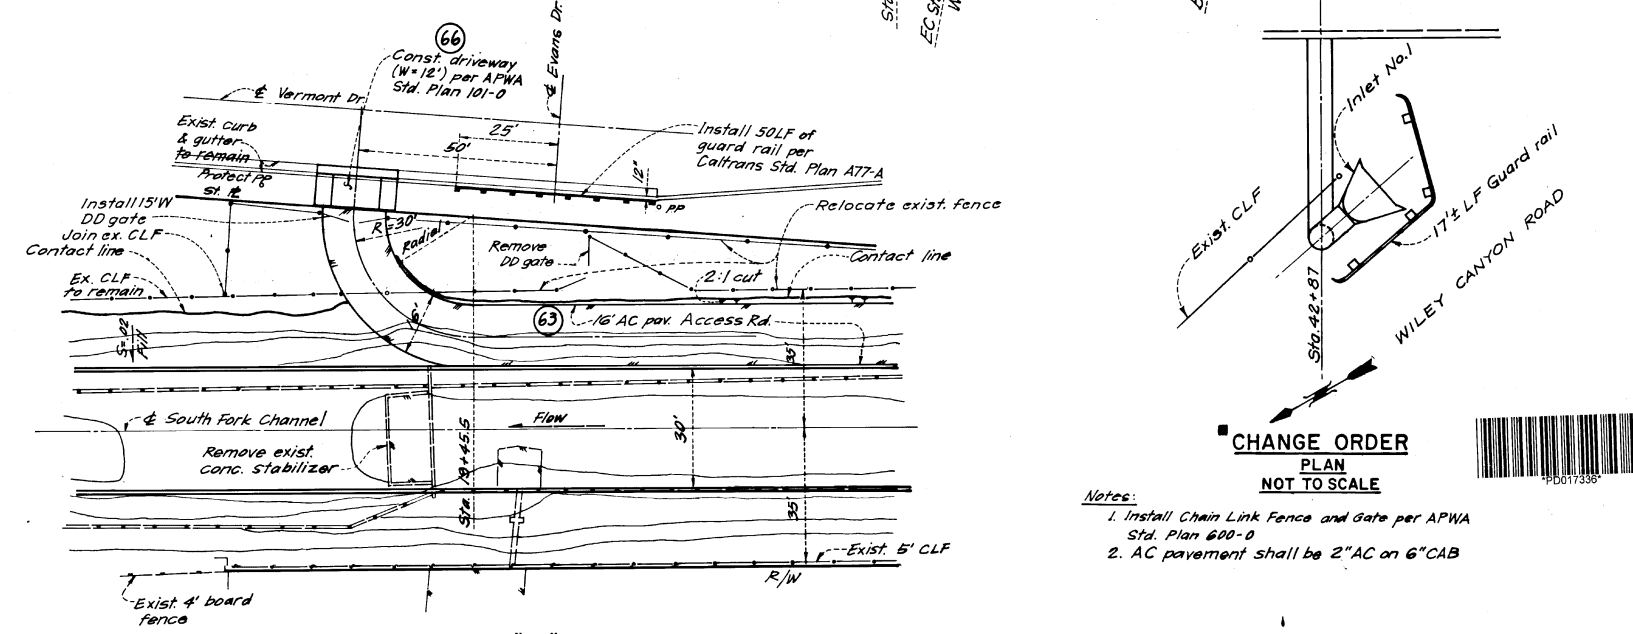 66
Const. driveway
(W=12') per APWA
Std. Plan 101-0
℄ Evans Dr.
℄ Vermont Dr.
Exist. curb
& gutter
to remain
Protect PP
St. ℄
25'
50'
Install 50LF of
guard rail per
Caltrans Std. Plan A77-A
12"
PP
Install 15'W
DD gate
Join ex. CLF
Contact line
Ex. CLF
to remain
R=30'
Radial
Remove
DD gate
Relocate exist. fence
2:1 cut
Contact line
63
16' AC pav. Access Rd.
S=.02
Fill
35'
℄ South Fork Channel
Flow
Remove exist.
conc. stabilizer
Sta. 19+45.5
30'
35'
Exist. 5' CLF
R/W
Exist. 4' board
fence
Sta
EC St
Inlet No.1
Exist. CLF
17'± LF Guard rail
WILEY CANYON ROAD
Sta. 42+87
CHANGE ORDER
PLAN
NOT TO SCALE
*PD017336*
Notes:
1. Install Chain Link Fence and Gate per APWA
Std. Plan 600-0
2. AC pavement shall be 2"AC on 6"CAB